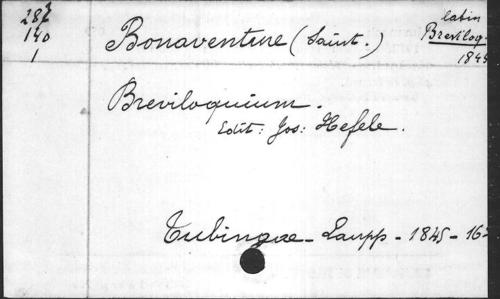 287
140
1
Bonaventure (Saint.)
latin
Breviloq
1845
Breviloquium.
Edit: Jos: Hefele.
Tubingae - Laupp - 1845 - 16